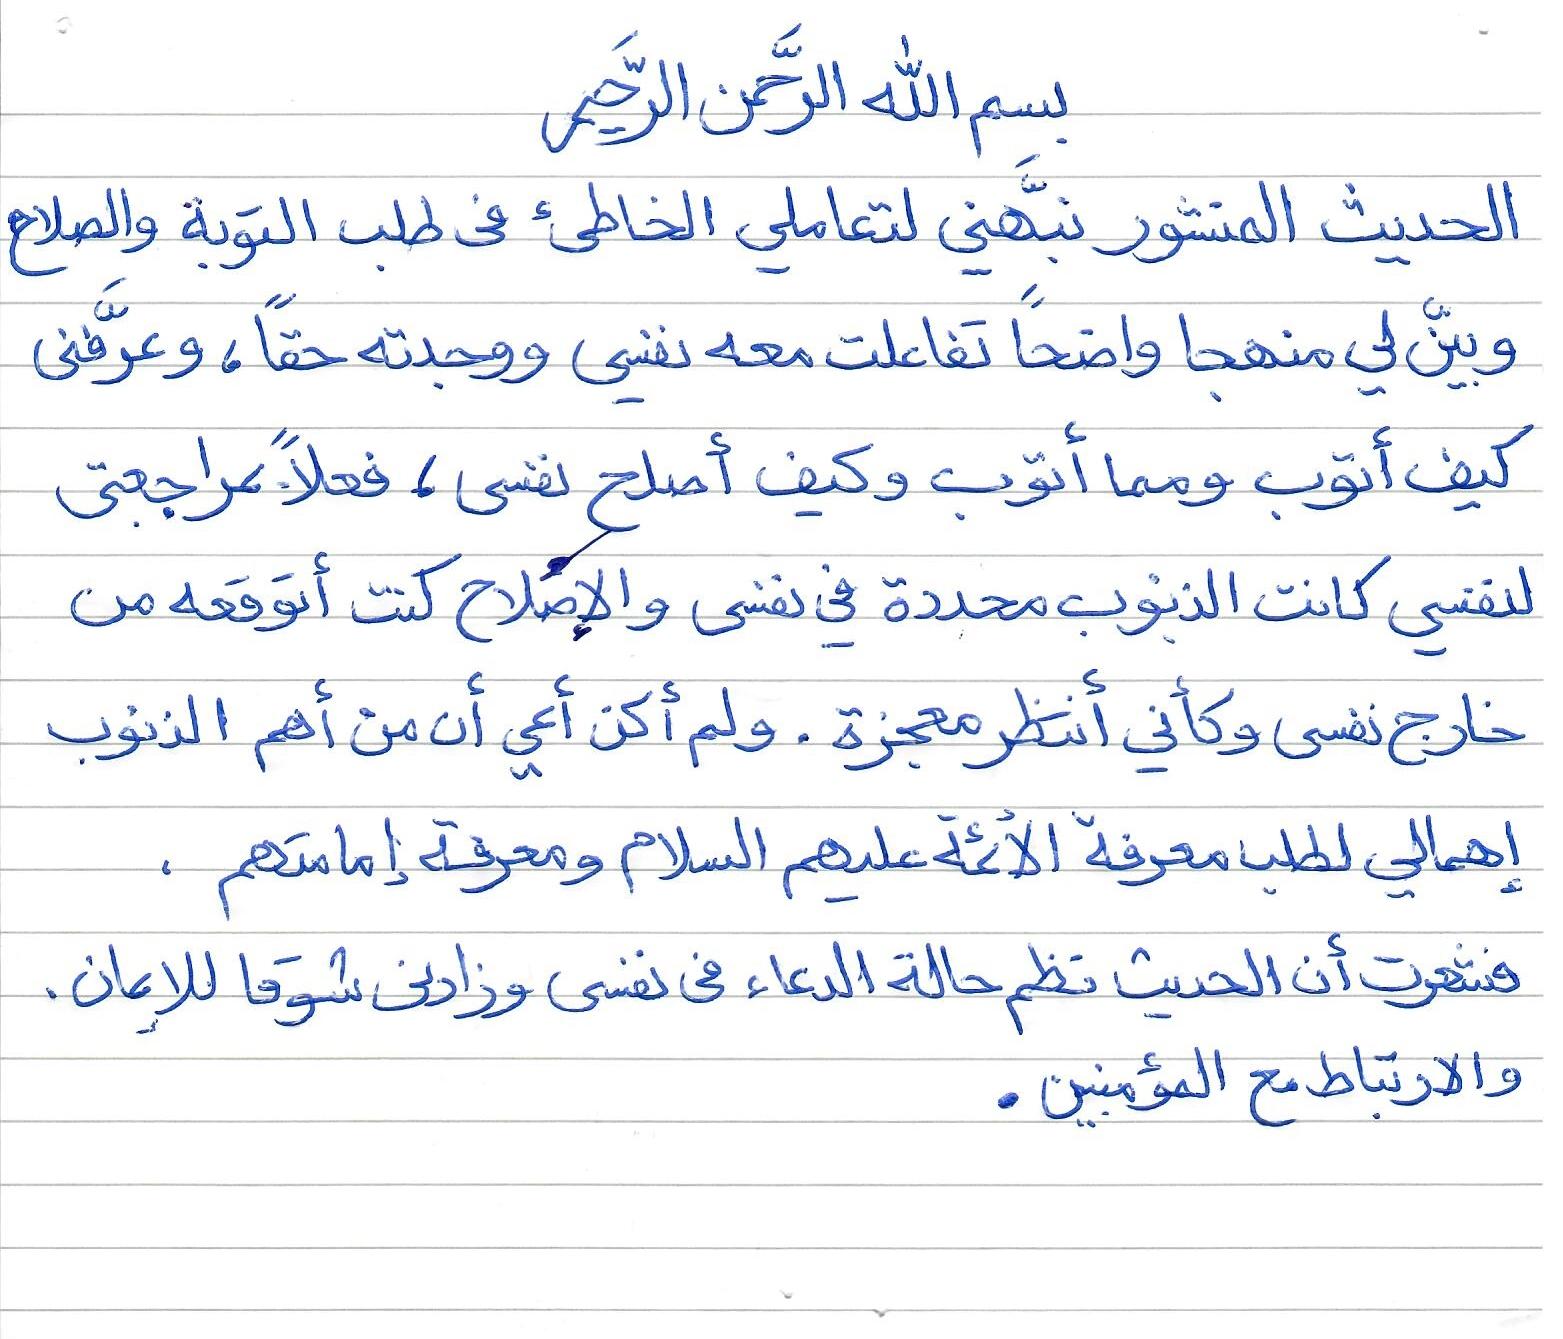 بسم الله الرَّحمن الرَّحيم
الحديث المنشور نبَّهني لتعاملي الخاطئ في طلب التوبة والصلاح
وبيّن لي منهجا واضحاً تفاعلت معه نفسي ووجدته حقاً، وعرَّفني
كيف أتوب ومما أتوب وكيف أصلح نفسي، فعلاً بمراجعتي
لنفسي كانت الذنوب محددة في نفسي والإصلاح كنت أتوقعه من
خارج نفسي وكأني أنتظر معجزة. ولم أكن أعي أن من أهم الذنوب
إهمالي لطلب معرفة الأئمة عليهم السلام ومعرفة إمامتهم.
فشعرت أن الحديث نظم حالة الدعاء في نفسي وزادني شوقا للإيمان.
والارتباط مع المؤمنين.